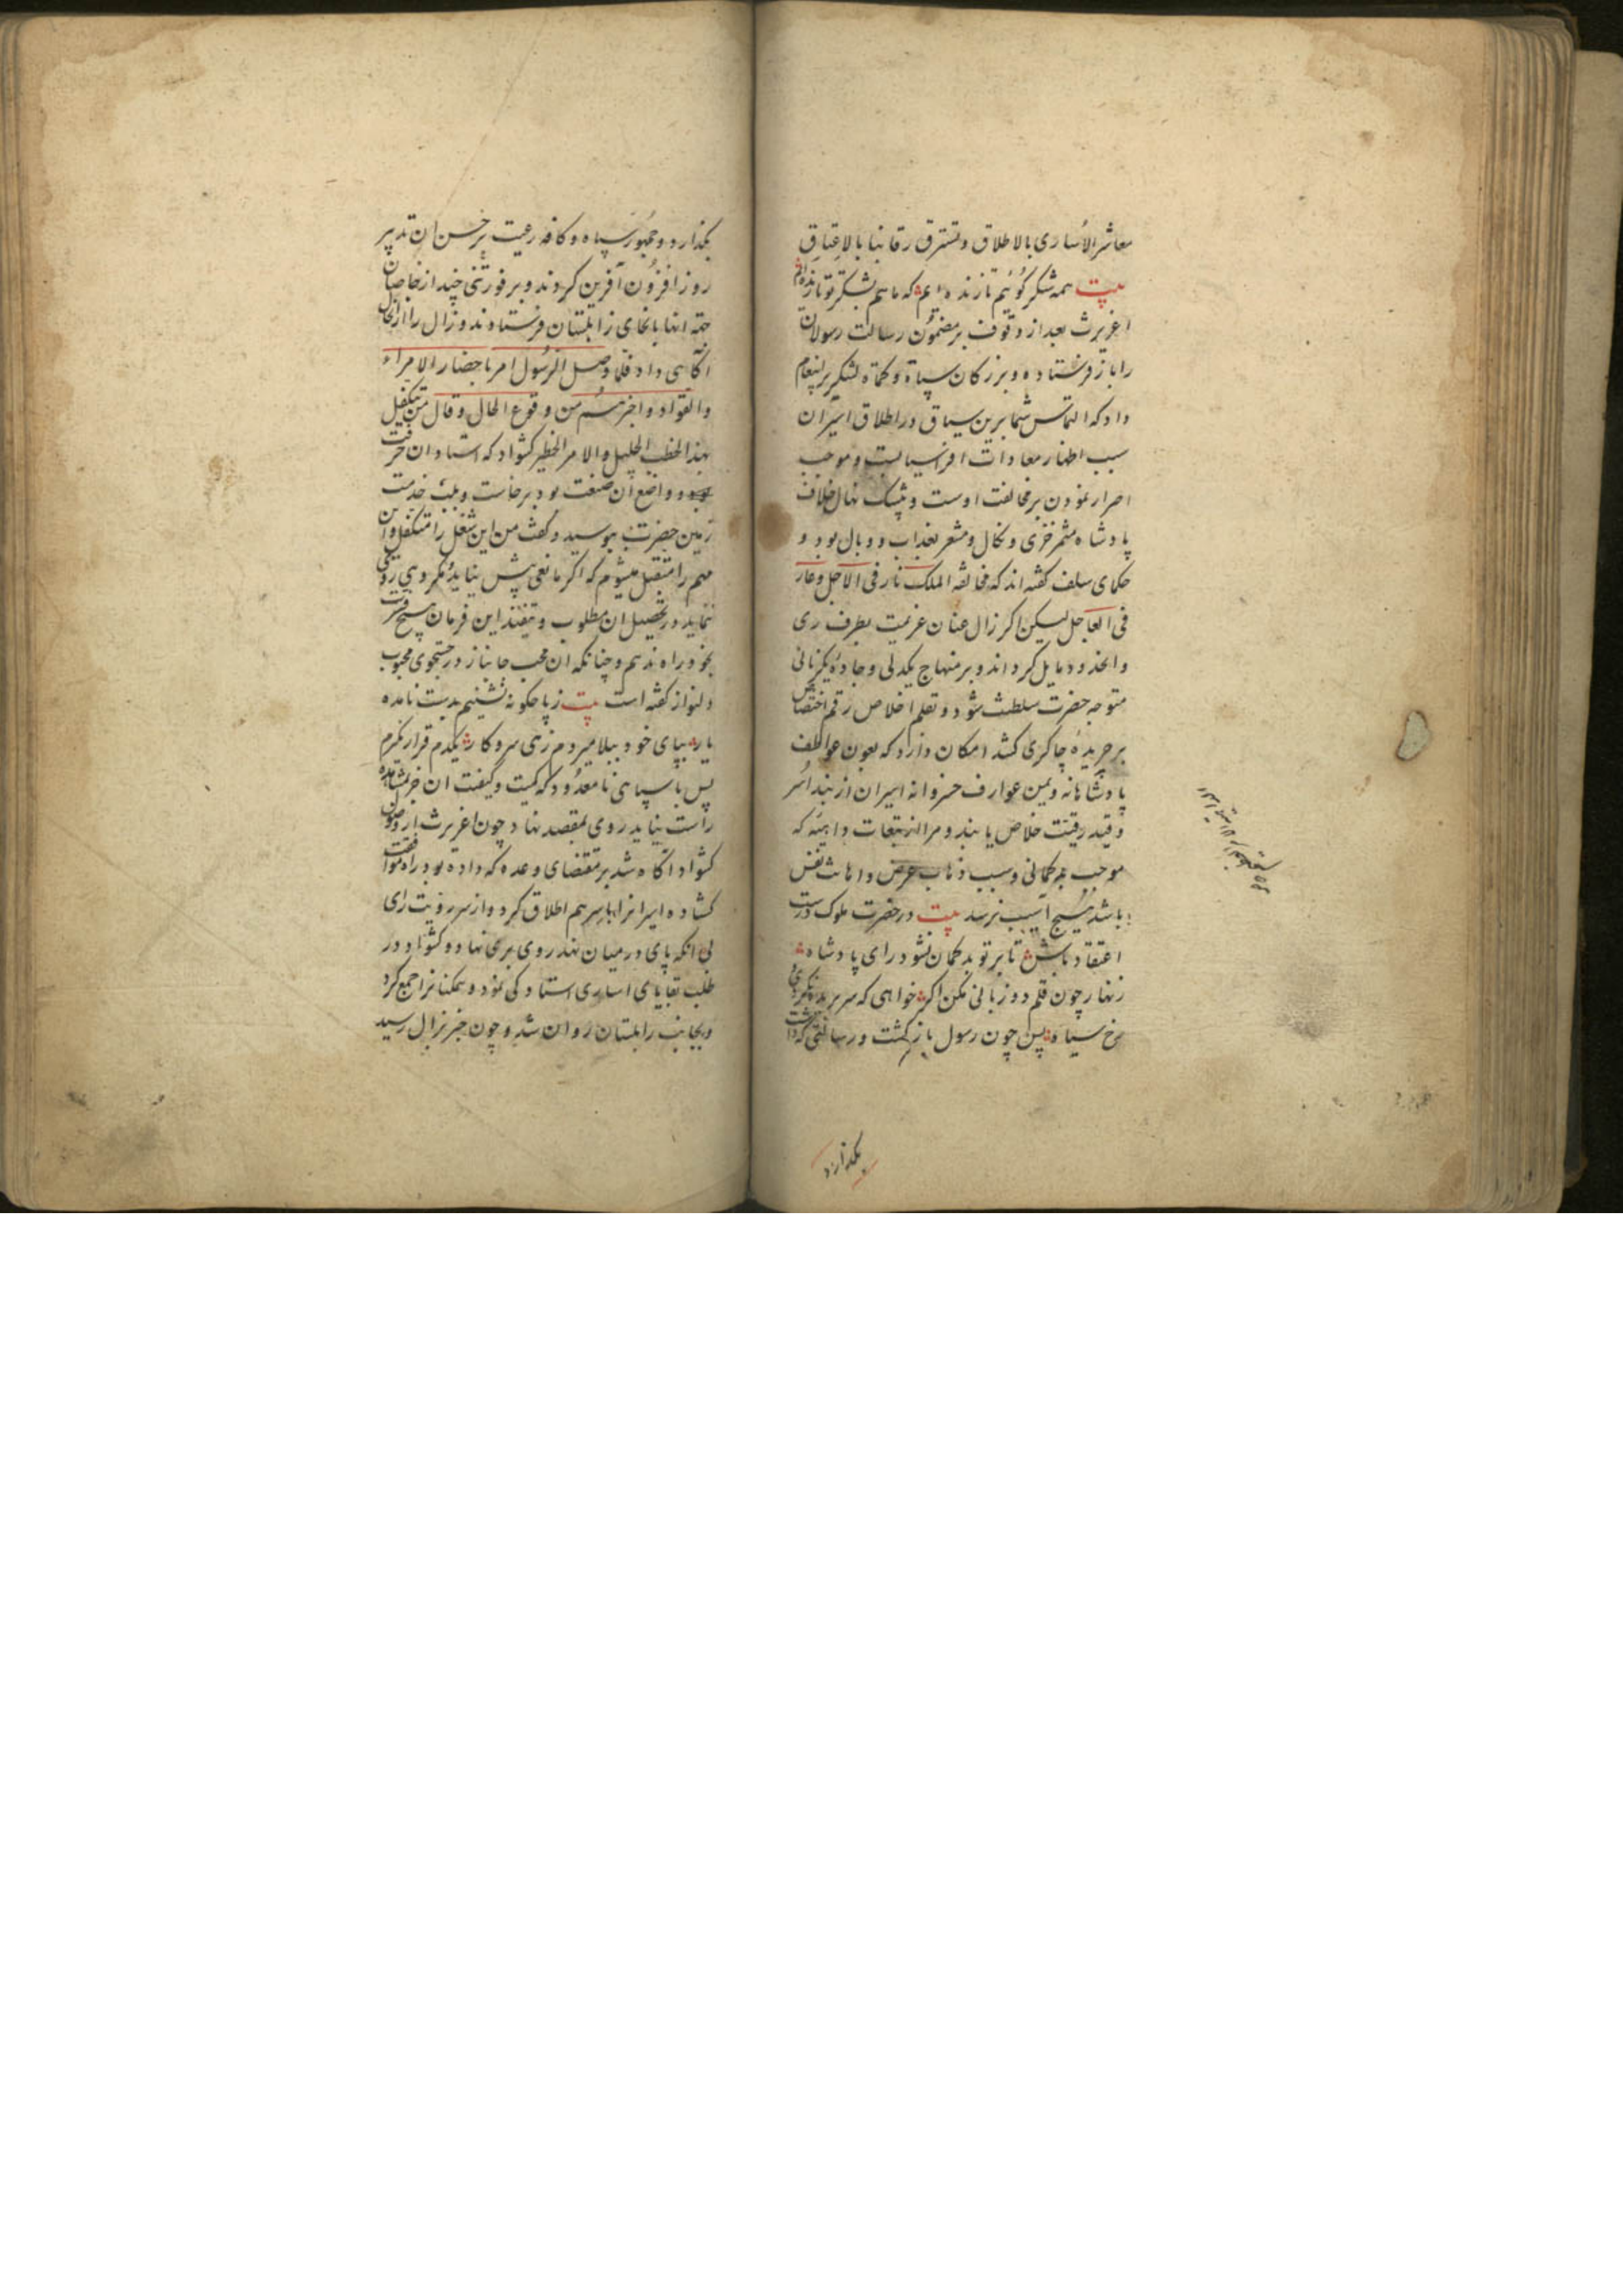 معاشر الاُساری بالاطلاق و تسترق رقابنا بالاعتاق
بیت همه شکر کوئیم تا زنده ایم که ما هم بشکر تو تا زنده ایم
اغریرث بعد از وقوف بر مضمون رسالت رسولان
را باز فرستاده و بزرکان سپاه و کماة لشکر پیغام
داد که التماس شما برین سیاق در اطلاق اسیران
سبب اظهار معادات افراسیابست و موجب
اصرار نمودن بر مخالفت اوست و بیشک نهال خلاف
پادشاه مثمر خزی و نکال و مشعر بعذاب و وبال بود و
حکمای سلف کفته اند که مخالفة الملک نار فی الآجل و عار
فی العاجل لیکن اکر زال عنان عزیمت بطرف ری
و انحدود مایل کرداند و بر منهاج یکدلی و جاده یکزبانی
متوجه حضرت سلطنت شود و بقلم اخلاص رقم اختصاص
بر جریده چاکری کشد امکان دارد که بعون عواطف
پادشاهانه و یمن عوارف خسروانه اسیران از بند اسر
و قید رقیت خلاص یابند و مرا از تبعات واهیه که
موجب بدکمانی و سبب ذهاب عرض و اهانت نفس
باشد هیچ آسیب نرسد بیت در حضرت ملوک درست
اعتقاد باش تا بر تو بد کمان نشود رای پادشاه
زنهار چون قلم دو زبانی مکن اکر خواهی که سر بریده نکردی
رخ سیاه پس چون رسول باز کشت و رسالتی که داشت
بکذارد
بکذارد و جمهور سپاه و کافه رعیت بر حسن ان تدبیر
روز افزون آفرین کردند و بر فور تنی چند از خاصان
جهة انها بانحای زابلستان فرستادند و زال را از انحال
اکاهی داد فلما وصل الرسول امر باحضار الامراء
والقواد و اخبرهم من وقوع الحال و قال من یتکفل
بهذا الخطب الجلیل والامر الخطیر کشواد که استاد ان حرفت
و واضع ان صنعت بود برخاست و بلب خدمت
زمین حضرت ببوسید و کفت من این شغل را متکفل و این
مهم را متقبل میشوم که اکر مانعی پیش نیاید و مکروهی روی
ننماید در تحصیل ان مطلوب و تنفیذ این فرمان هیچ فترت
بخود راه ندهم و چنانکه ان محب جانباز در جستجوی محبوب
دلنواز کفته است بیت ز پا چکونه نشینم بدست نامده
یار بپای خود ببلا میروم زهی سر و کار یکدم قرار نکیرم
پس با سپاهی نامعدود که کمیت و کیفیت ان خبر بمشاهده
راست نیاید روی بمقصد نهاد چون اغریرث از وصول
کشواد اکاه شد بر مقتضای وعده که داده بود راه موافقت
کشاده اسیرانرا باسرهم اطلاق کرد و از سر رویت رای
بی انکه پای در میان نهد روی بری نهاد و کشواد در
طلب بقایای اساری استادکی نمود و همکنانرا جمع کرد
و بجانب زابلستان روان شد و چون خبر بزال رسید